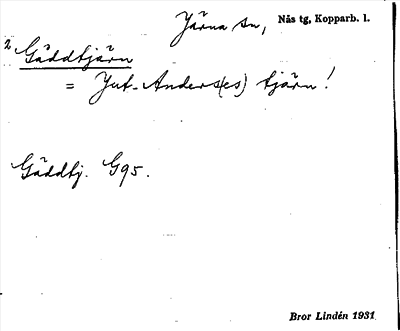 Järna sn, Nås tg, Kopparb. l.
2 Gäddtjärn
= Jut-Anders(es) tjärn!
Gäddtj. G95.
Bror Lindén 1931